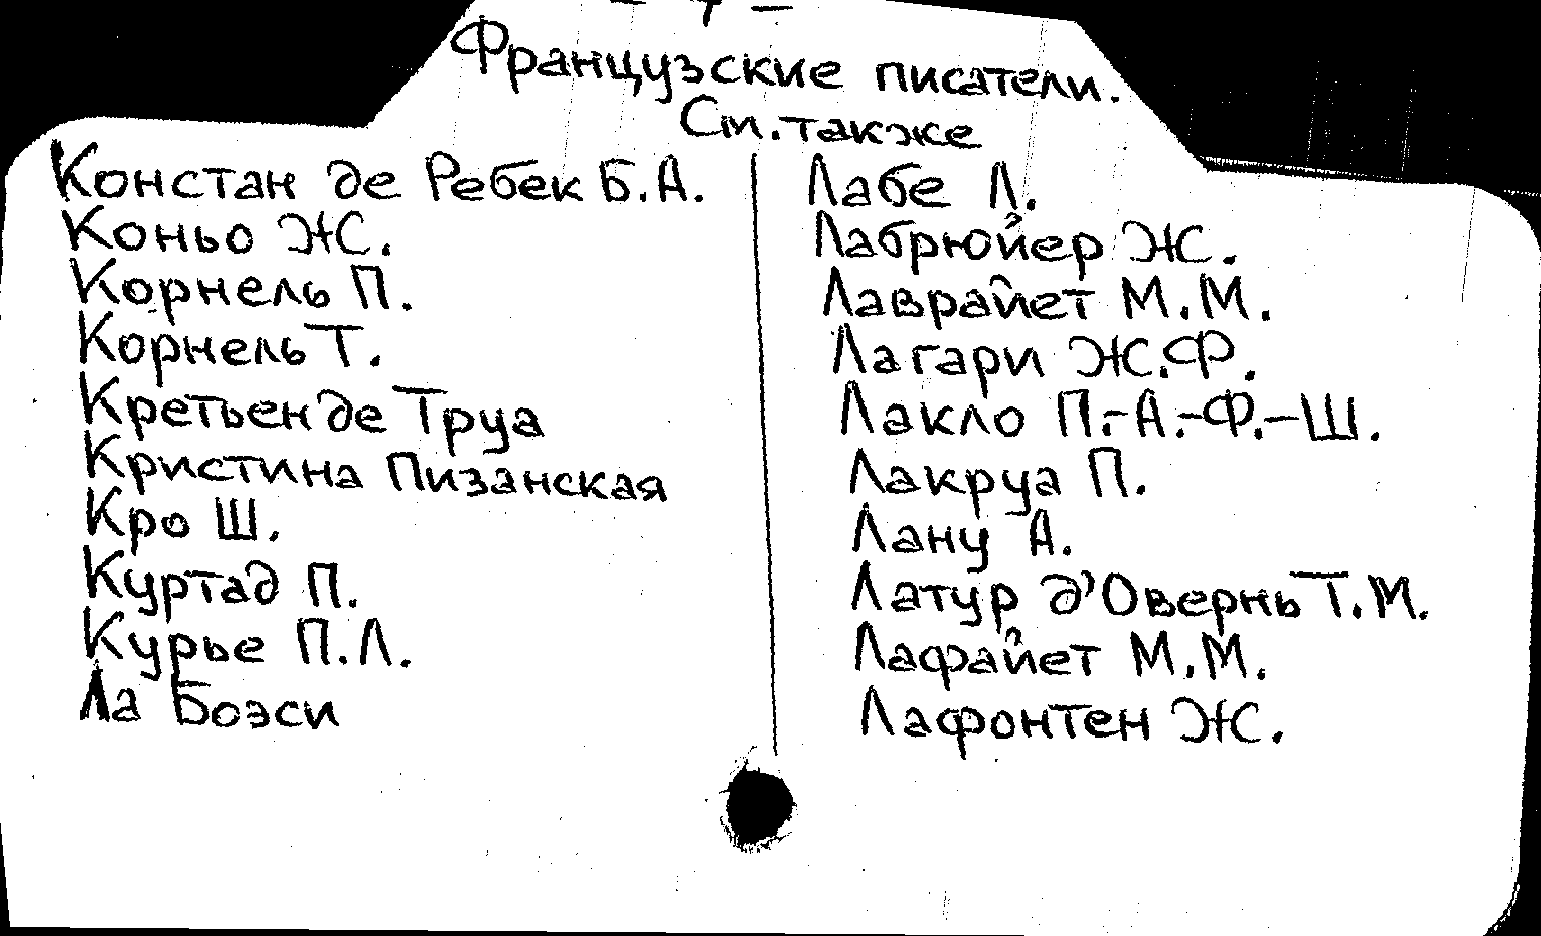 Французские писатели.
См. также
Констан де Ребек Б.А.
Коньо Ж.
Корнель П.
Корнель Т.
Кретьен де Труа
Кристина Пизанская
Кро Ш.
Куртад П.
Курье П.Л.
Ла Боэси
Лабе Л.
Лабрюйер Ж.
Лаврайет М.М.
Лагарп Ж.Ф.
Лакло П.-А.-Ф.-Ш.
Лакруа П.
Лану А.
Латур д'Овернь Т.М.
Лафайет М.М.
Лафонтен Ж.